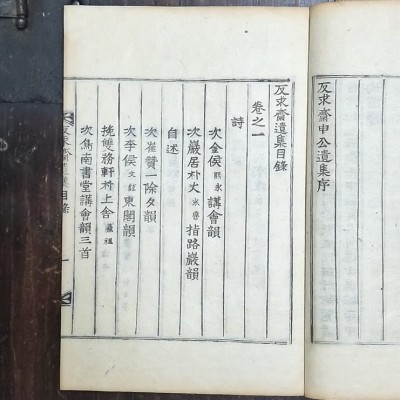 反求齋申公遺集序
反求齋遺集目錄
卷之一
詩
次金侯熙永講會韻
次嚴居朴丈永魯指路巖韻
自述
次崔贊一除夕韻
次李侯文鉉東閣韻
挽雙務軒村上舍
次爲南書堂講會韻三首
反求齋遺集目錄
一